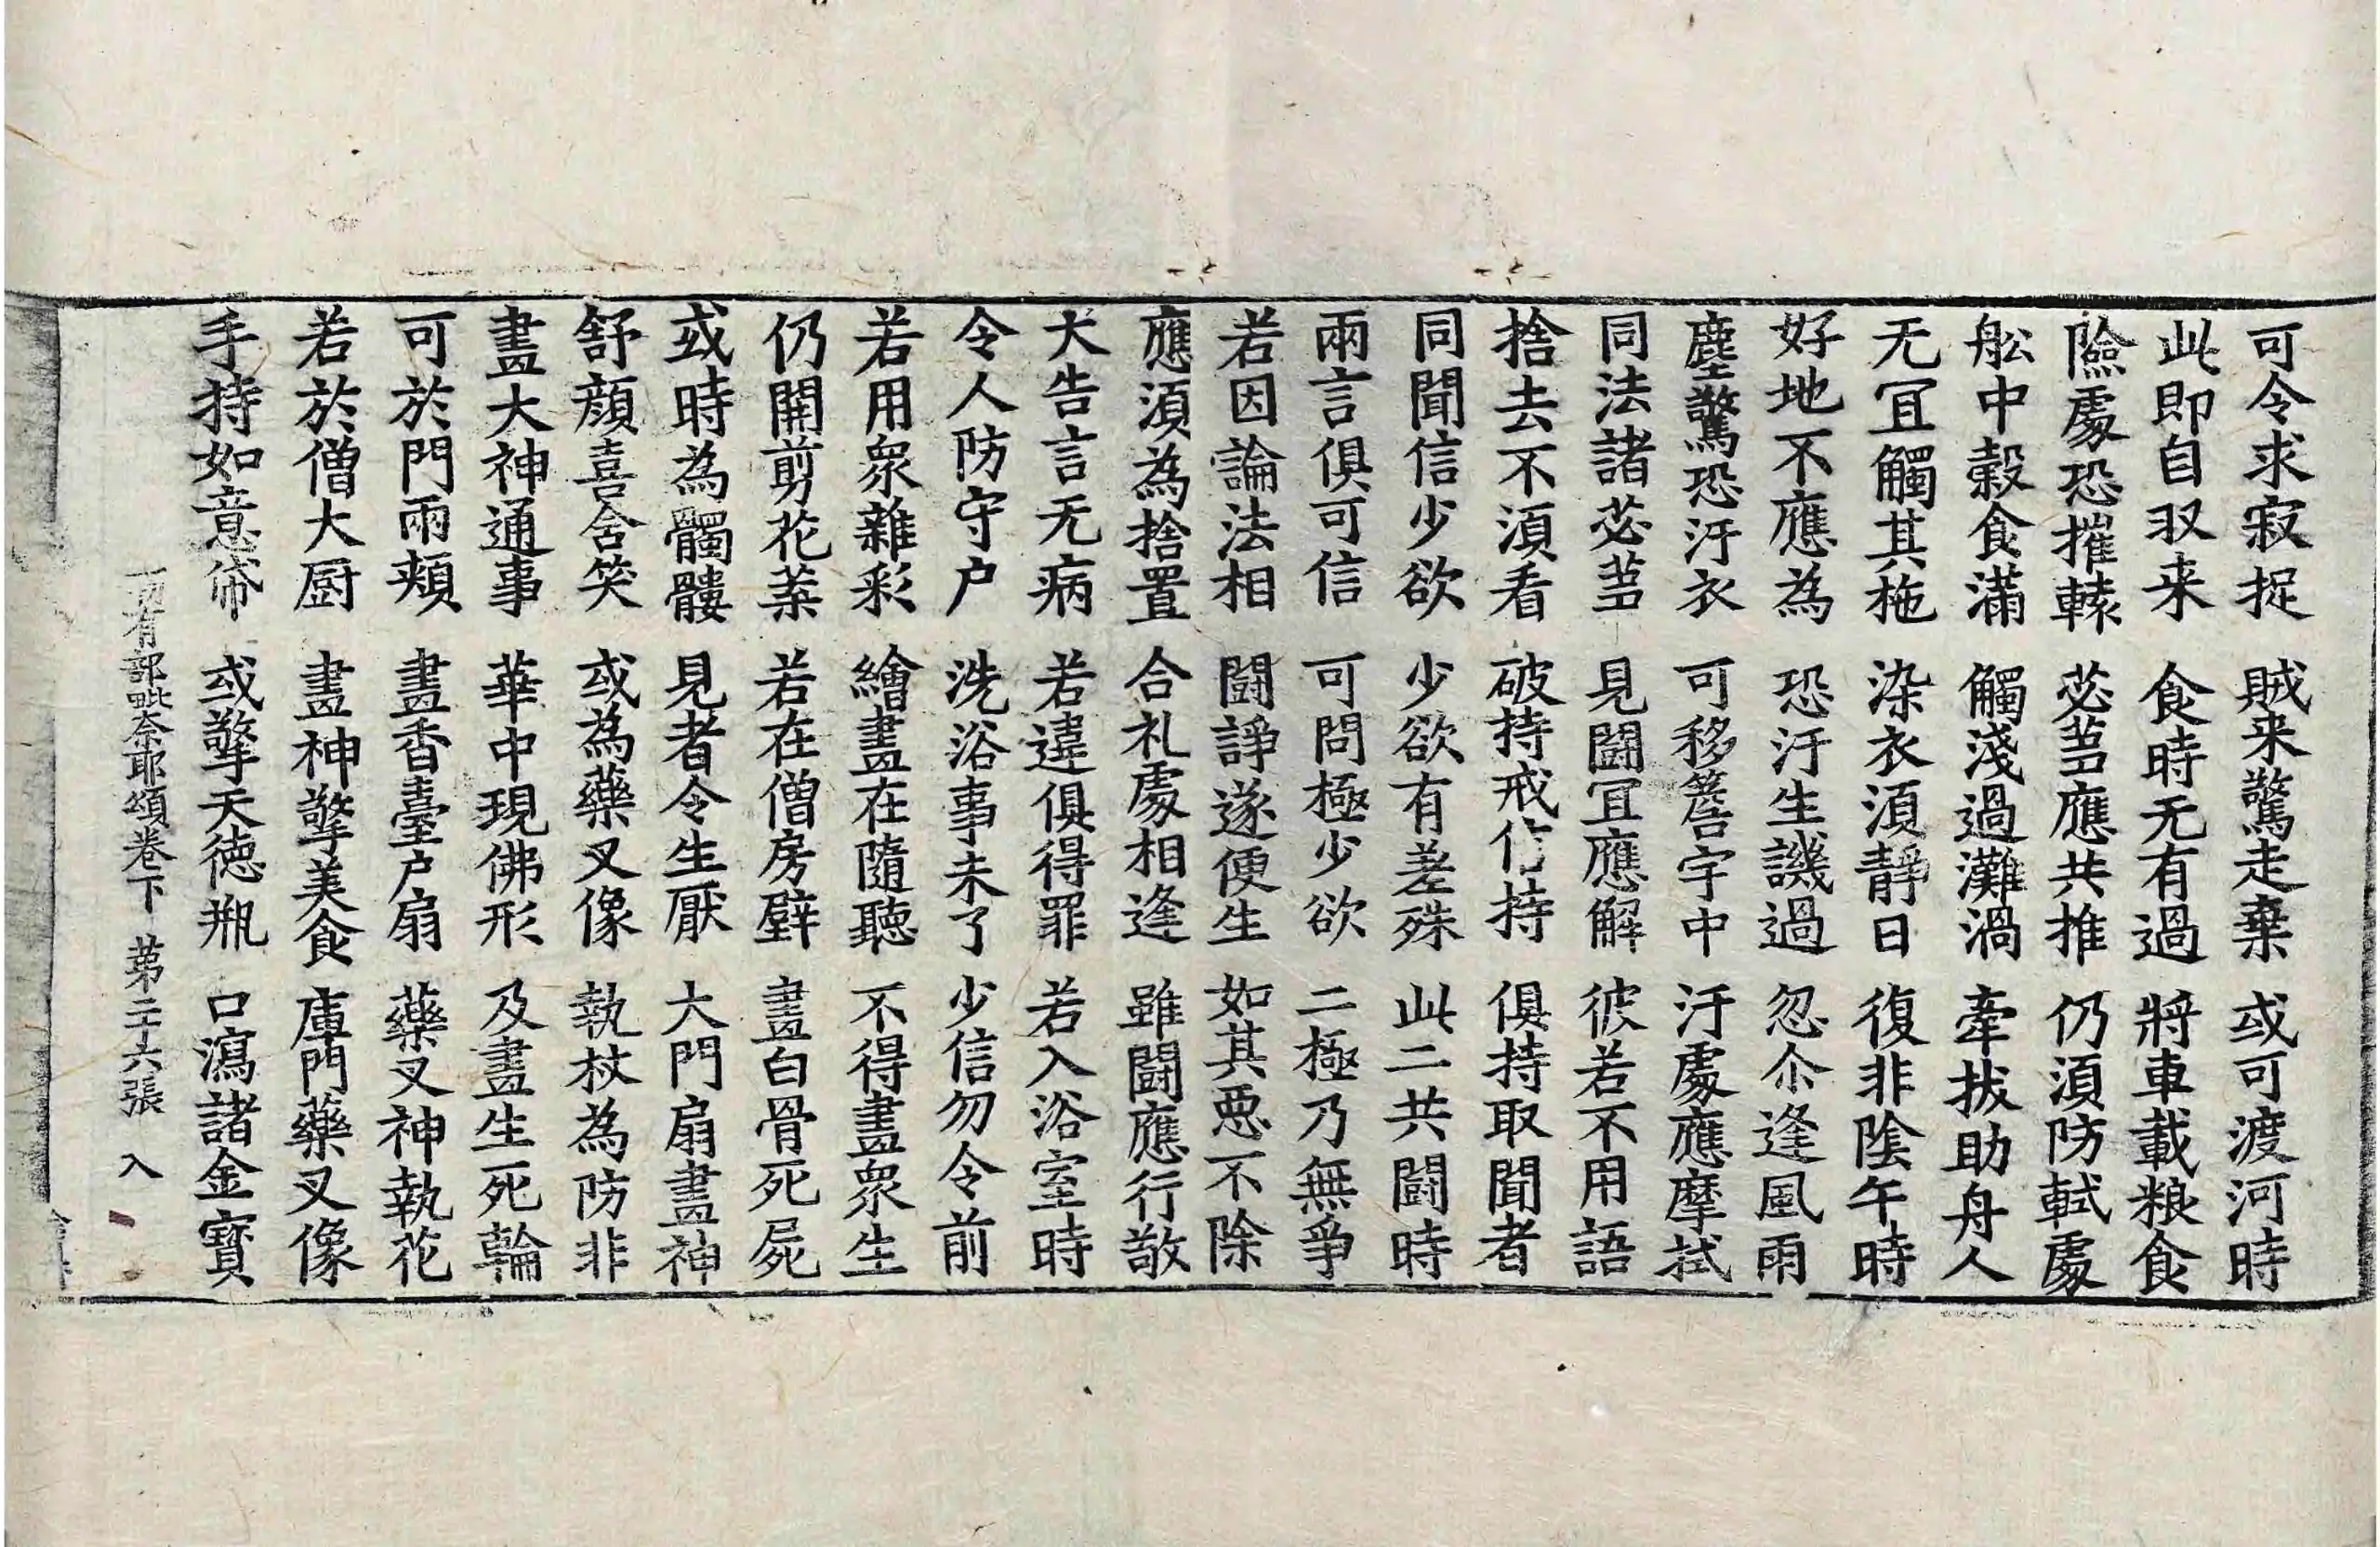 可令求寂捉　賊来驚走棄　或可渡河時
此即自収来　食時无有過　將車載粮食
險處恐摧轅　苾芻應共推　仍湏防軾處
舩中榖食滿　觸淺過灘渦　牽拔助舟人
无冝觸其柂　染衣湏靜日　復非陰午時
好地不應為　恐汙生譏過　忽尒逢風雨
塵驚恐汙衣　可移簷宇中　汙處應摩拭
同法諸苾芻　見闘冝應解　彼若不用語
捨去不湏看　破持戒作持　俱持取聞者
同聞信少欲　少欲有差殊　此二共闘時
兩言俱可信　可問極少欲　二極乃無爭
若因論法相　闘諍遂便生　如其惡不除
應湏為捨置　合礼處相逢　雖闘應行敬
大告言无病　若違俱得罪　若入浴室時
令人防守户　洗浴事未了　少信勿令前
若用衆雜彩　繪畫在隨聽　不得畫衆生
仍開剪花葉　若在僧房壁　畫白骨死屍
或時為髑髏　見者令生厭　大門扇畫神
舒顔喜含笑　或為藥叉像　執杖為防非
畫大神通事　華中現佛形　及畫生死輪
可於門兩頰　畫香臺户扇　藥叉神執花
若於僧大厨　畫神擎美食　庫門藥叉像
手持如意帒　或擎天德瓶　口瀉諸金寶
一切有部毗奈耶頌卷下　第二十六張　入